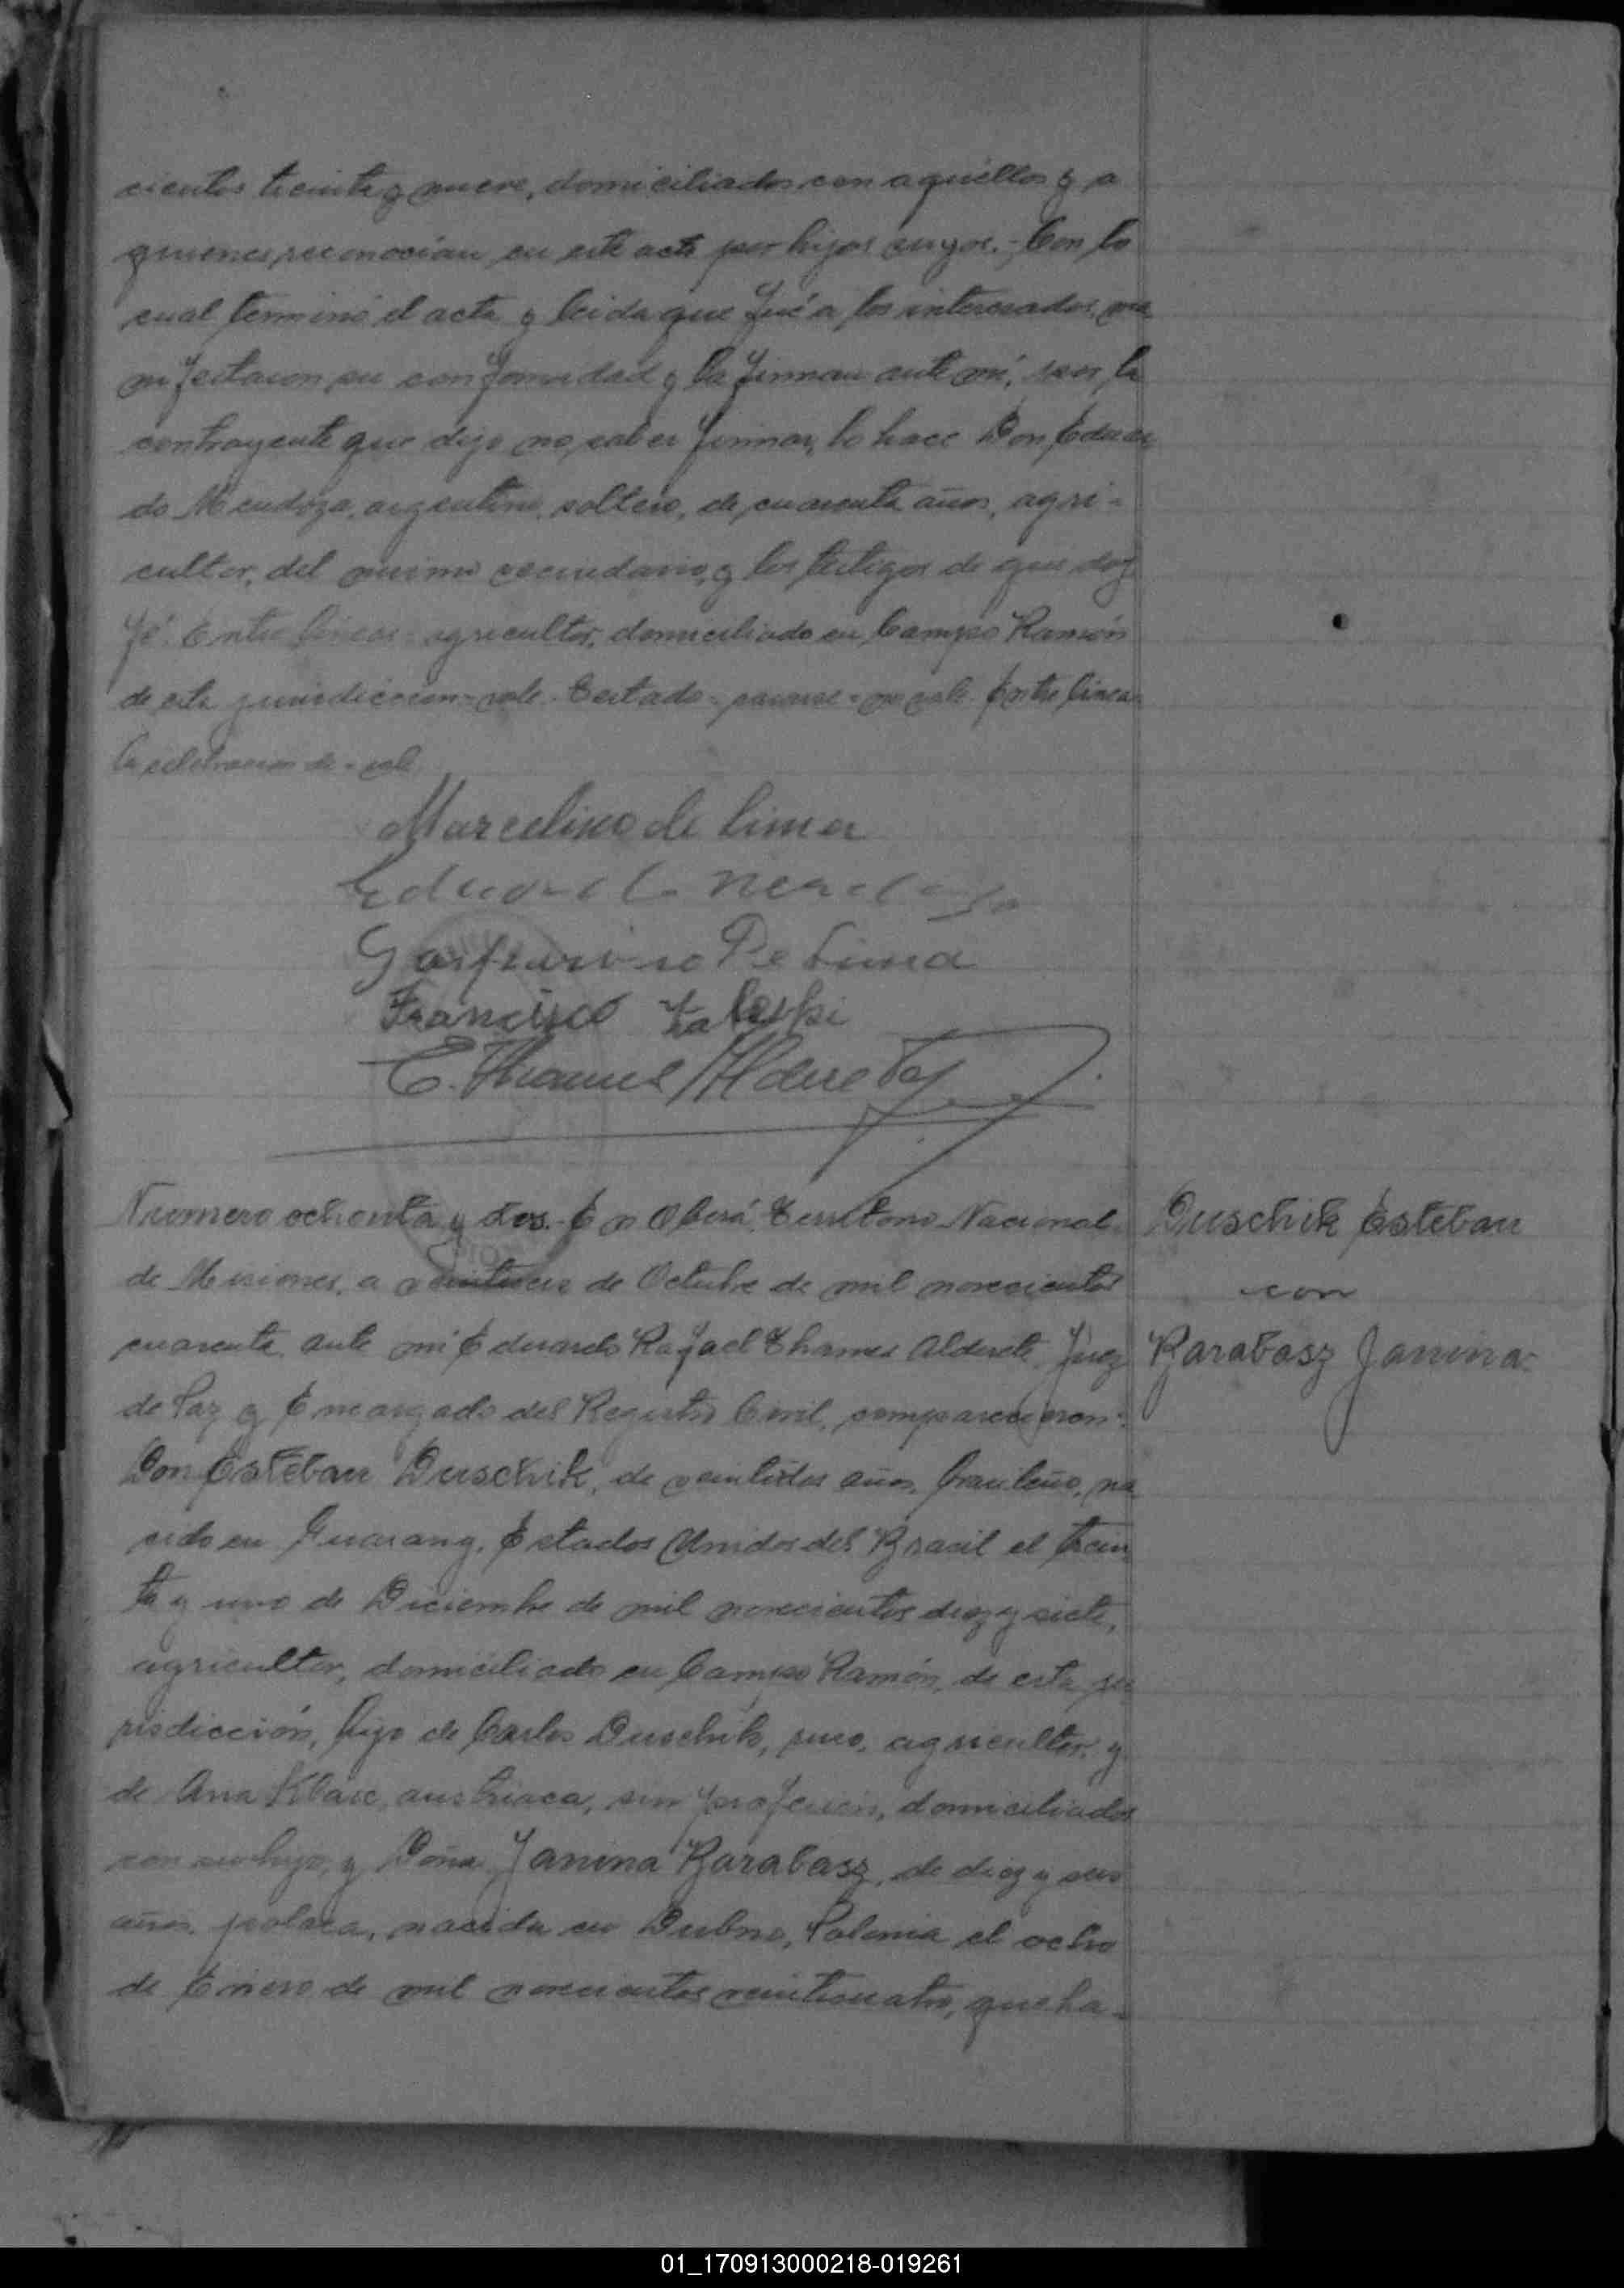 cientos treinta y nueve, domiciliados con aquéllos y a
quienes reconocían en este acto por hijos suyos.- Con lo
cual terminó el acta y leida que fué a los interesados, ma
nifestaron su conformidad y la firman ante mí, por la
contrayente que dijo no saber firmar, lo hace Don Eduar
do Mendoza, argentino, soltero, de cuarenta años, agri-
cultor, del mismo vecindario, y los testigos de que doy
fé. Entre lineas: agricultor, domiciliado en Campo Ramón
de esta jurisdiccion - vale. Testado - - no vale. Entre lineas
la celebracion de - vale
Marcelino de Lima
Eduardo Mendoza
De Lima
Francisco Zaleski
E. Thames Alderete
Numero ochenta y dos.- En Oberá, Territorio Nacional
de Misiones, a de Octubre de mil novecientos
cuarenta, ante mi Eduardo Rafael Thames Alderete, Juez
de Paz y Encargado del Registro Civil, comparecieron:
Don Esteban Duschik, de veintidos años, brasileño, na
cido en Guarany, Estados Unidos del Brasil el trein
ta y uno de Diciembre de mil novecientos diez y siete,
agricultor, domiciliado en Campo Ramón, de esta ju
risdicción, hijo de Carlos Duschik, ruso, agricultor, y
de Ana austriaca, sin profesion, domiciliados
con su hijo, y Doña Janina Karabasz, de diez y seis
años, polaca, nacida en Dubno, Polonia el ocho
de Enero de mil novecientos veinticuatro, queha-
Duschik Esteban
con
Karabasz Janina
01_170913000218-019261